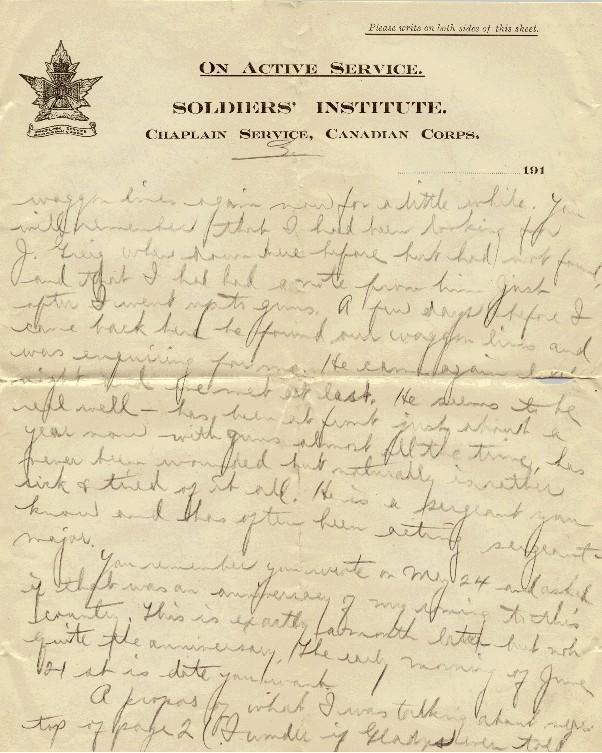 Please write on both sides of this sheet.
ON ACTIVE SERVICE.
SOLDIERS' INSTITUTE.
CHAPLAIN SERVICE, CANADIAN CORPS.
191
waggon lines again now for a little while. You
will remember that I had been looking for
J. Greig when down here before but had not found
and that I had had a note from him just
after I went up to guns. A few days before I
came back here he found our waggon lines and
was enquiring for me. He came again last
night and we met at last. He seems to be
real well – has been at front just about a
year now with guns almost all the time, has
never been wounded but naturally is rather
sick & tired of it all. He is a sergeant you
know and has often been acting sergeant-
major.
You remember you wrote on May 24 and asked
if that was an anniversary of my coming to this
country. This is exactly a month later but not
quite the anniversary. The early morning of June
21st is date you want.
A propos of what I was talking about
top of page 2 (I wonder if Gladys ever told